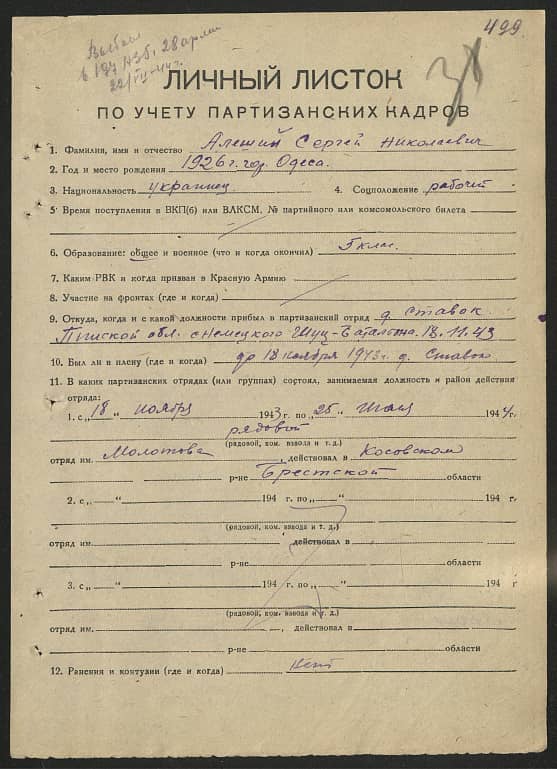 499.
Выбыл
в 197 АЗб, 28 арми
38
ЛИЧНЫЙ ЛИСТОК
ПО УЧЕТУ ПАРТИЗАНСКИХ КАДРОВ
1. Фамилия, имя и отчество Алешин Сергей Николаевич
2. Год и место рождения 1926 г. гор. Одеса.
3. Национальность украинец 4. Соцположение рабочий
5 Время поступления в ВКП(б) или ВЛКСМ, № партийного или комсомольского билета
6. Образование: общее и военное (что и когда окончил) 5 клас.
7. Каким РВК и когда призван в Красную Армию
8. Участие на фронтах (где и когда)
9. Откуда, когда и с какой должности прибыл в партизанский отряд д. Ставок
Пинской обл. с немецкого Шуц-Батальона 18.11.43
10. Был ли в плену (где и когда) до 18 ноября 1943 г. д. Ставок
11. В каких партизанских отрядах (или группах) состоял, занимаемая должность и район действия
отряда:
1. с „18“ ноября 1943 г. по „25“ Июля 1944 г.
рядовой
(рядовой, ком. взвода и т. д.)
отряд им. Молотова, действовал в Косовском
р-не Брестской области
2. с „ “ 194 г. по „ “ 194 г.
(рядовой, ком. взвода и т. д.)
отряд им. действовал в
р-не области
3. с „ “ 194 г. по „ “ 194 г
(рядовой, ком. взвода и т. д.)
отряд им. , действовал в
р-не области
12. Ранения и контузии (где и когда) нет